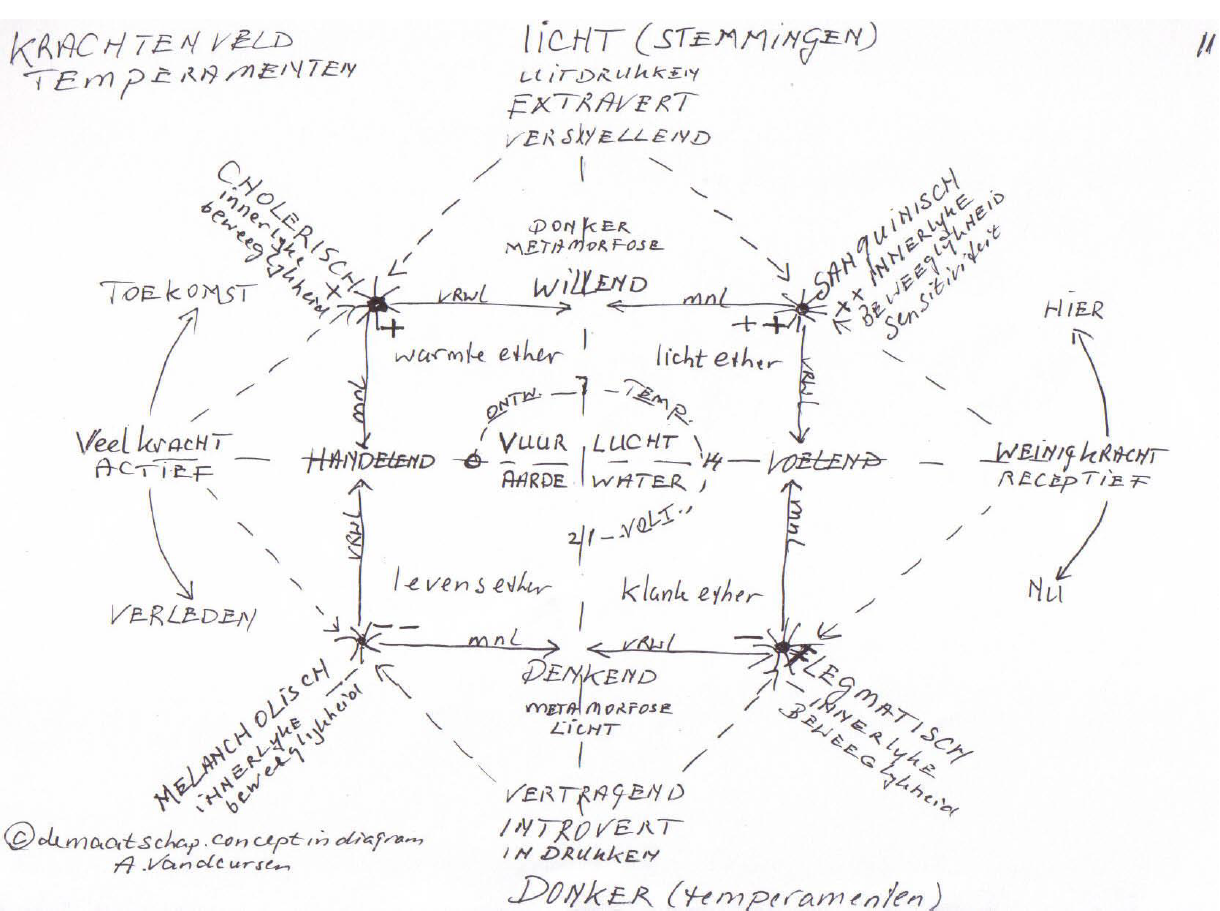 KRACHTENVELD
TEMPERAMENTEN
LICHT (STEMMINGEN)
UITDRUKKEN
EXTRAVERT
VERSNELLEND
11
CHOLERISCH
innerlyke +
beweeglykheid
SANQUINISCH
++ INNERLYKE
BEWEEGLYKHEID
Sensitiviteit
DONKER
METAMORFOSE
WILLEND
VRWL
MNL
TOEKOMST
HIER
+
++
warmte ether
licht ether
MNL
VRWL
ONTW.
7
TEMP.
Veel kRACHT
ACTIEF
HANDELEND
0
VUUR
LUCHT
14
VOELEND
WEINIG KRACHT
RECEPTIEF
AARDE
WATER
VRWL
MNL
21
VOLI.
levensether
klank ether
VERLEDEN
NU
--
-
MNL
VRWL
DENKEND
METAMORFOSE
LICHT
MELANCHOLISCH
INNERLYKE --
beweeglykheid
FLEGMATISCH
- INNERLYKE
BEWEEGLYKheid
VERTRAGEND
INTROVERT
INDRUKKEN
DONKER (temperamenten)
© demaatschap.concept in diagram
A. Vandeursen